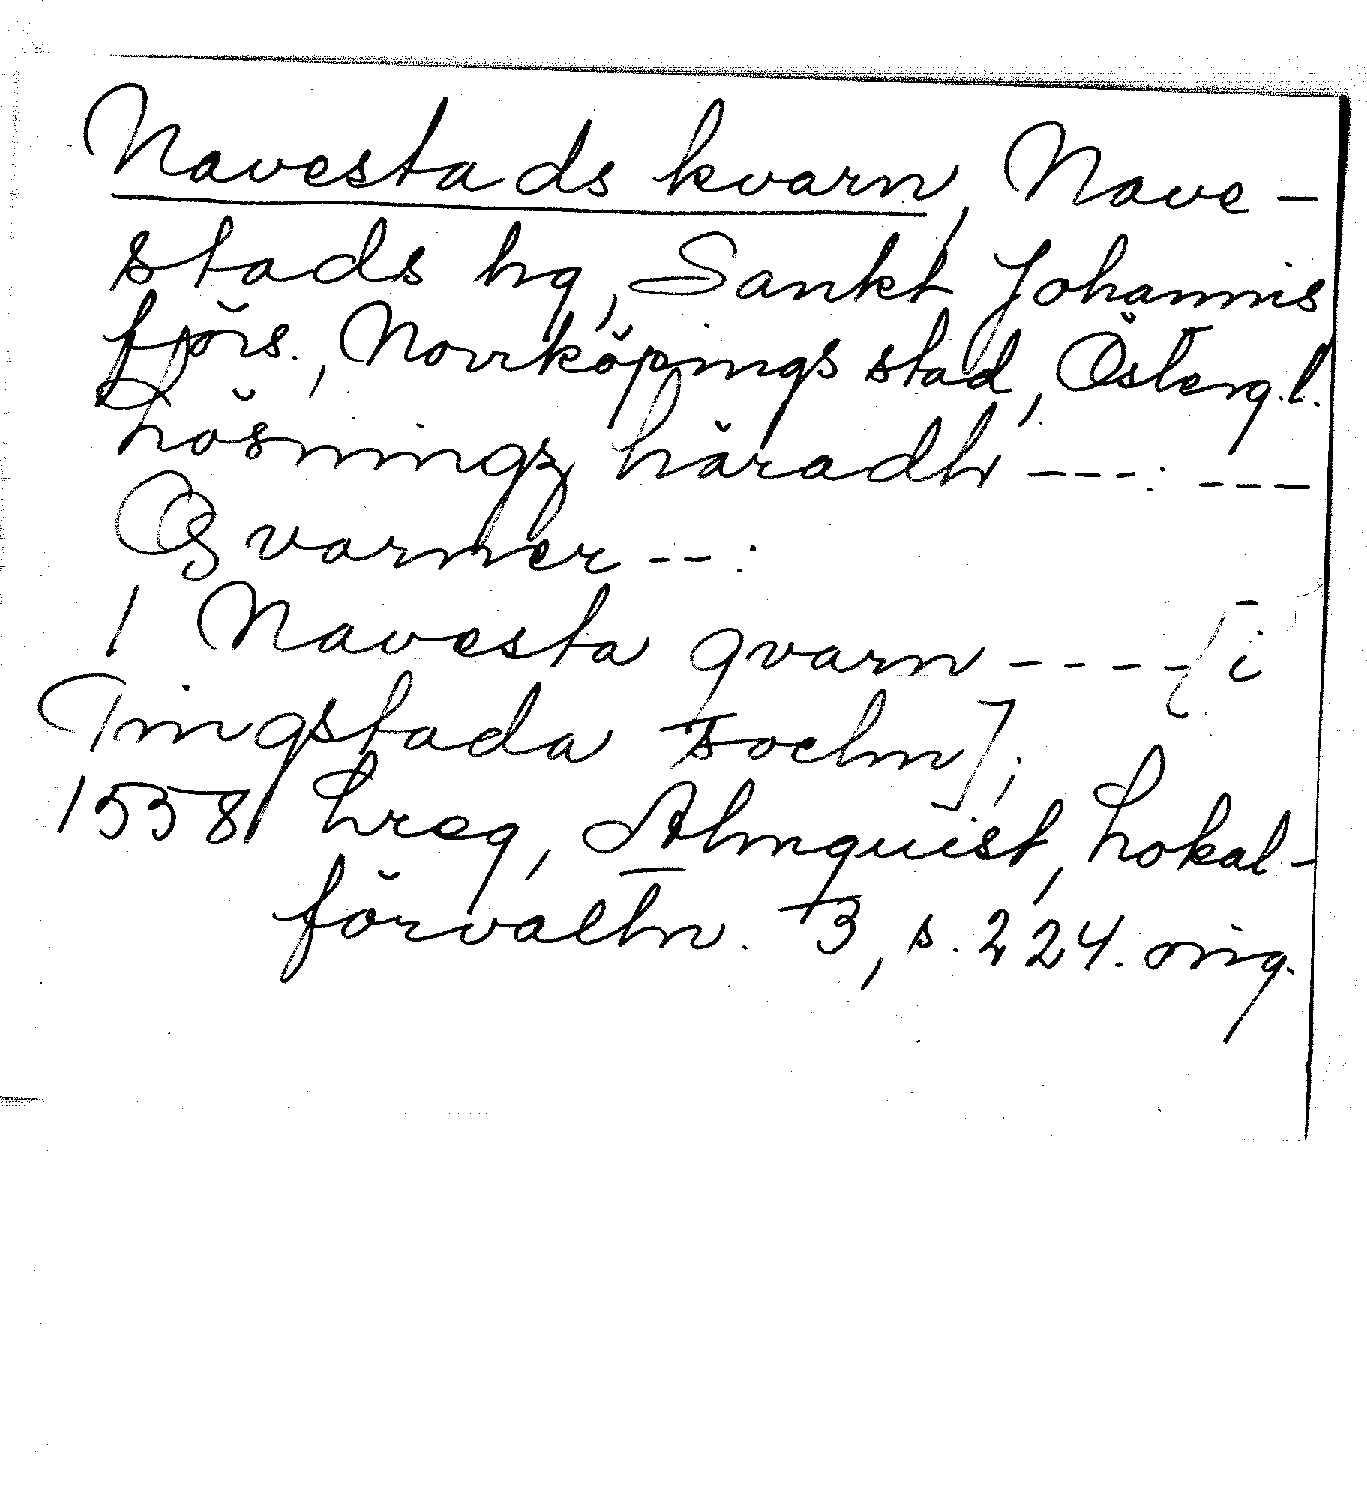 Navestads kvarn, Nave-
stads hg, Sankt Johannis
förs., Norrköpings stad, Östergl.
Lösningz häradh ---: ---
Qvarner --:
1 Navesta qvarn ---- [i
Tingstada sochn];
1558 Lreg, Almquist, Lokal-
förvaltn. 3, s. 224. orig.